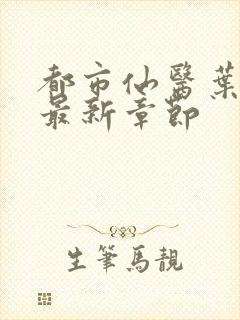 都市仙醫葉
最新章節
生筆馬靚